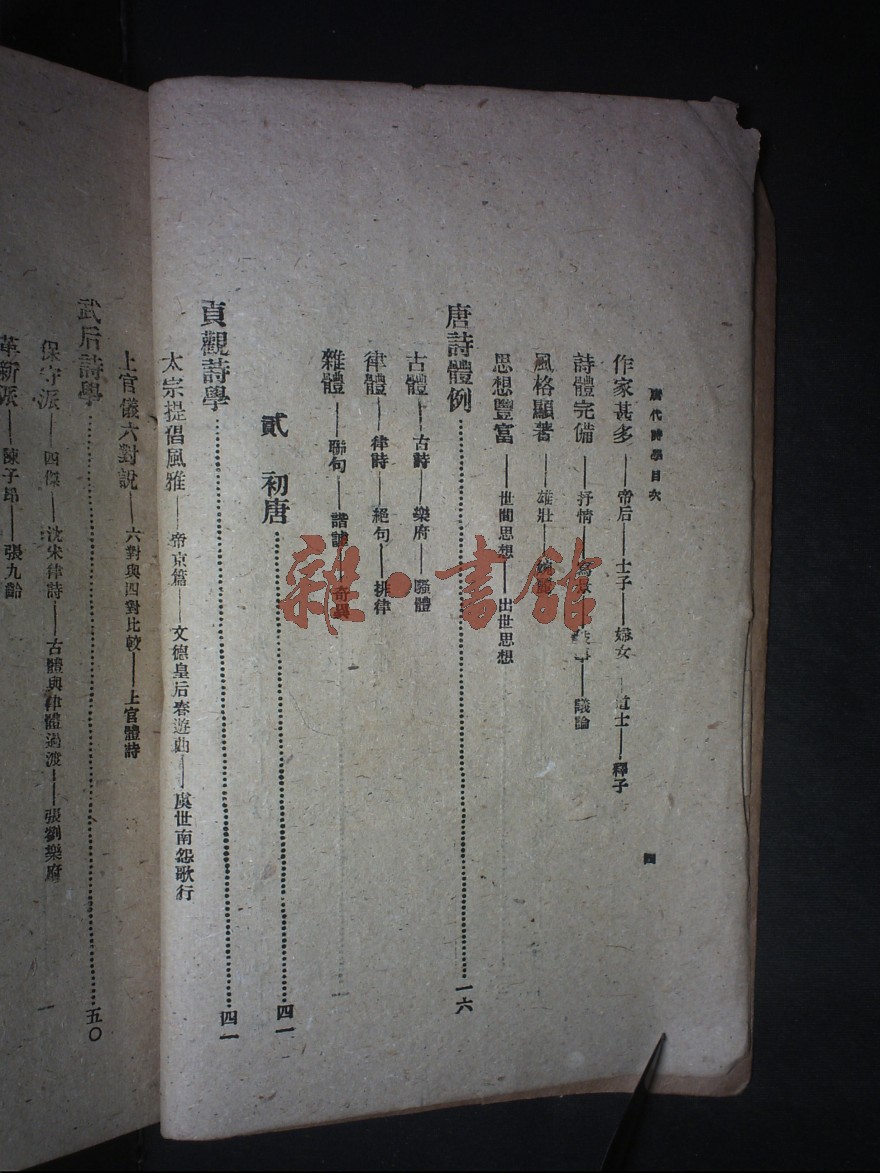 唐代詩學目次
作家甚多——帝后——士子——婦女——道士——釋子
詩體完備——抒情——寫景——議論
風格顯著——雄壯
思想豐富——世間思想——出世思想
唐詩體例……一六
古體——古詩——樂府——騷體
律體——律詩——絕句——排律
雜體——聯句——諧謔——奇異
貳 初唐……四一
貞觀詩學……四一
太宗提倡風雅——帝京篇——文德皇后春遊曲——虞世南怨歌行
上官儀六對說——六對與四對比較——上官體詩
武后詩學……五〇
保守派——四傑——沈宋律詩——古體與律體過渡——張劉樂府
革新派——陳子昂——張九齡
四
雜·書館